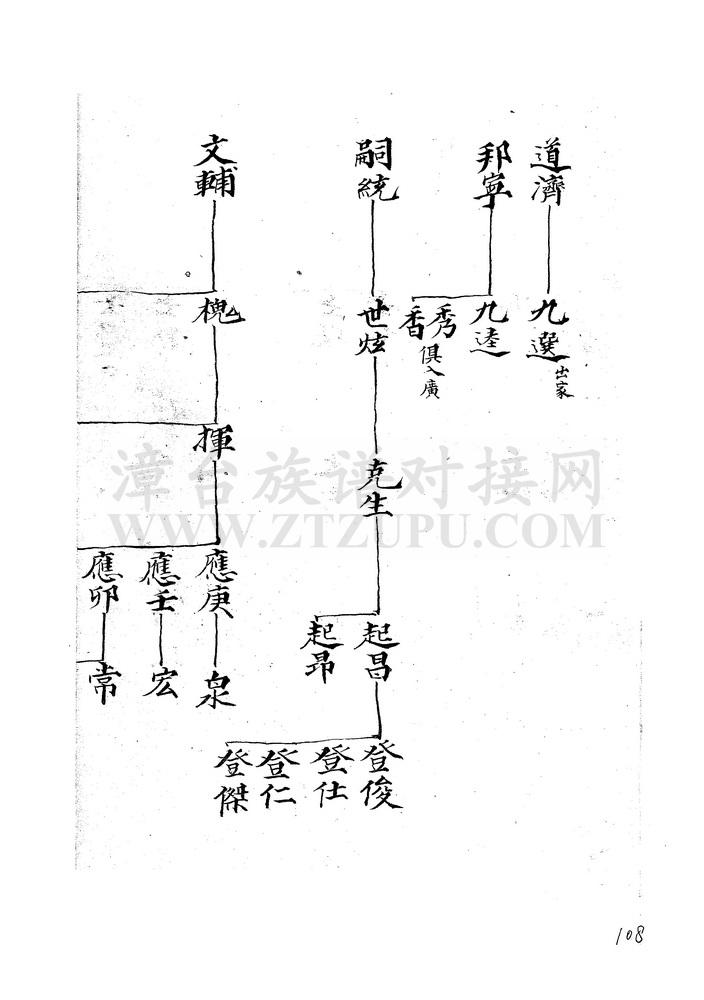 道濟
九選
出家
邦寧
九逵
秀
香
俱入廣
嗣統
世炫
克生
起昌
起昂
登俊
登仕
登仁
登傑
文輔
槐
揮
應庚
應壬
應卯
泉
宏
常
漳台族谱对接网
WWW.ZTZUPU.COM
108